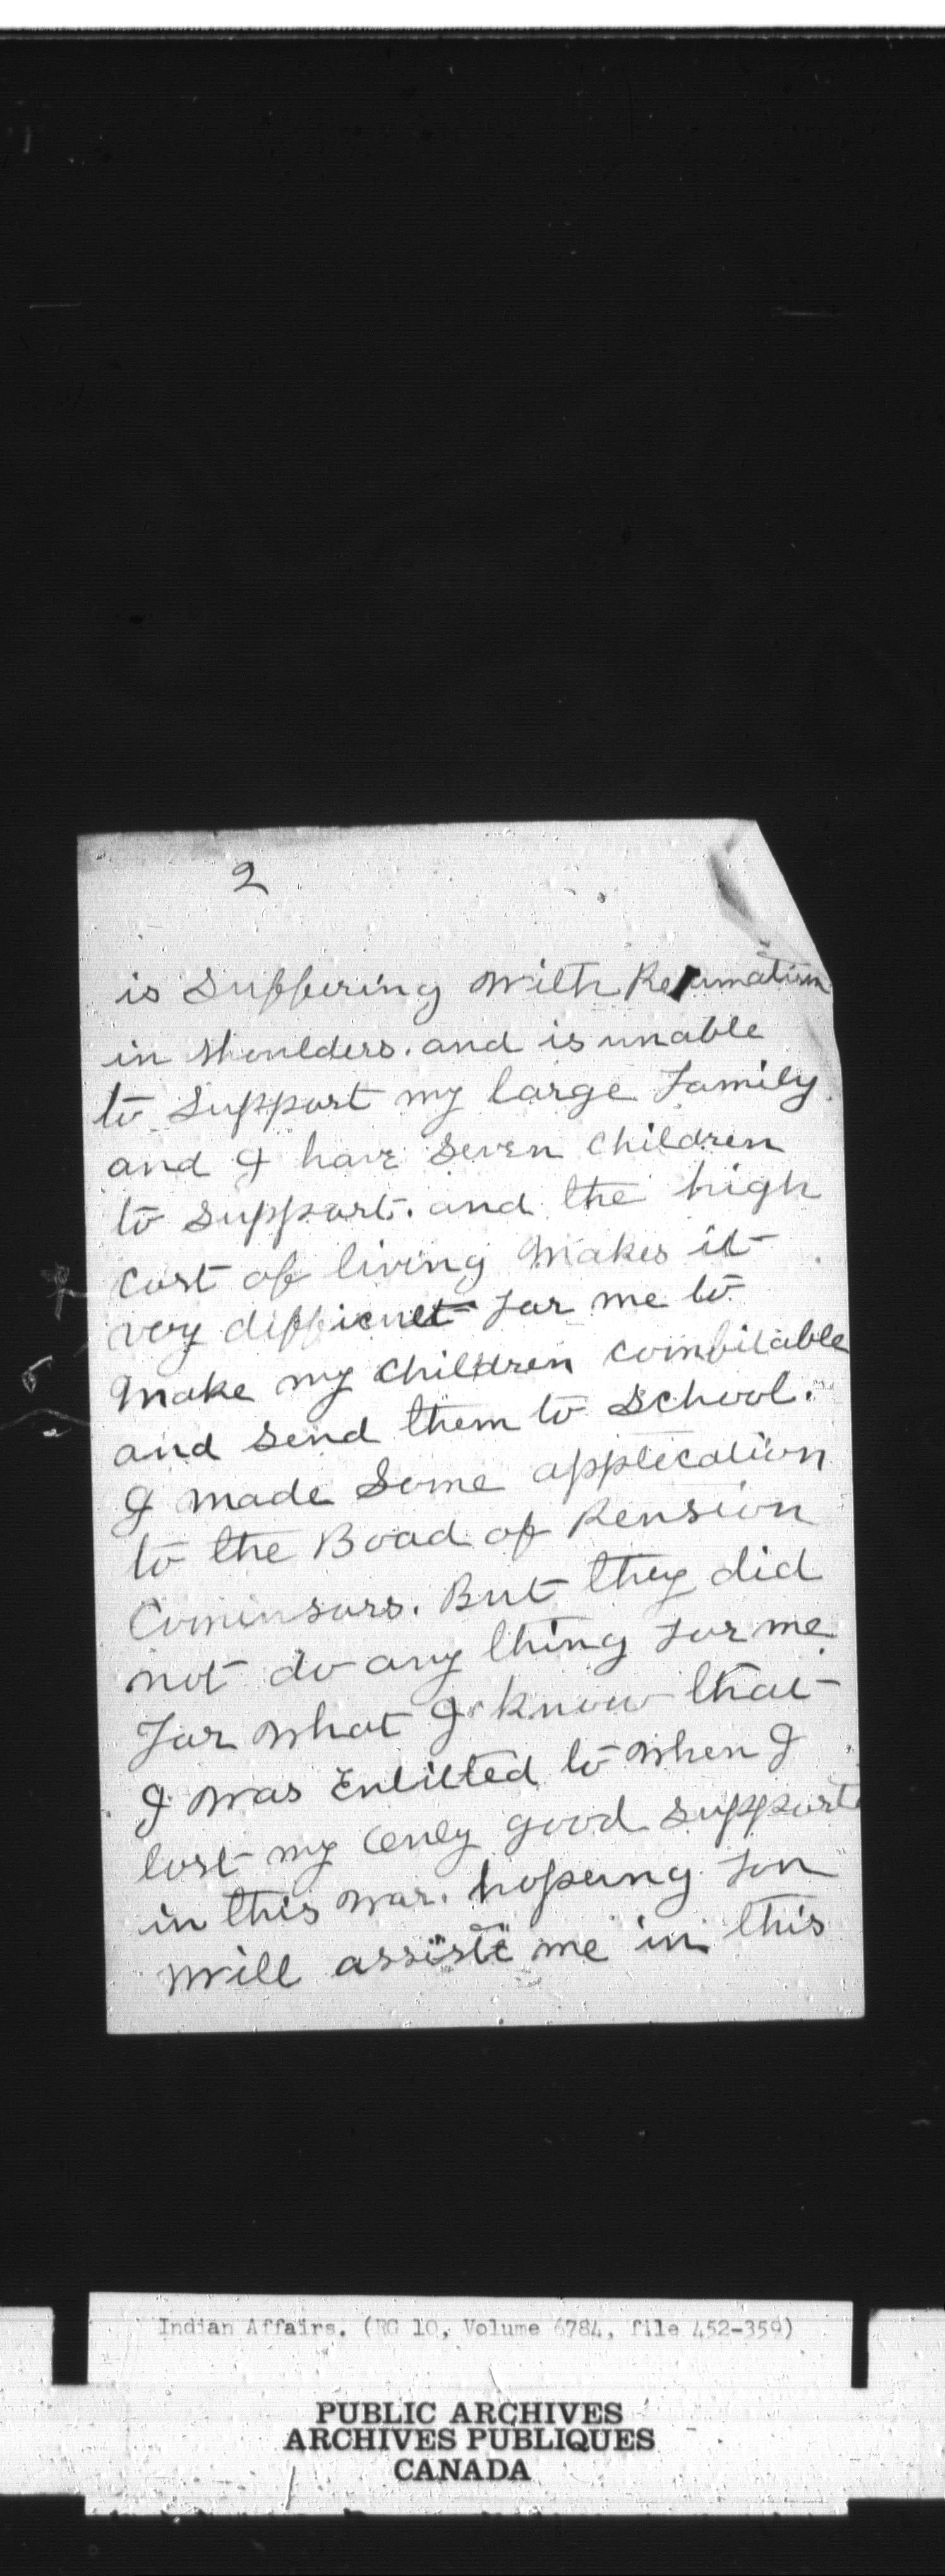 2
is Suffering with Reumatism
in shoulders. and is unable
to Support my large Family
and I have Seven Children
to Support. and the high
Cost of living Makes it
very difficult For me to
Make my Children combitable
and Send them to School.
I made Some application
to the Boad of Pension
Cominsors. But they did
not do any thing For me
For what I know that
I was Entitted to when I
lost my good Support
in this war. hopeing
will assist me in this
Indian Affairs. (RG 10, Volume 6784, file 452-359)
PUBLIC ARCHIVES
ARCHIVES PUBLIQUES
CANADA